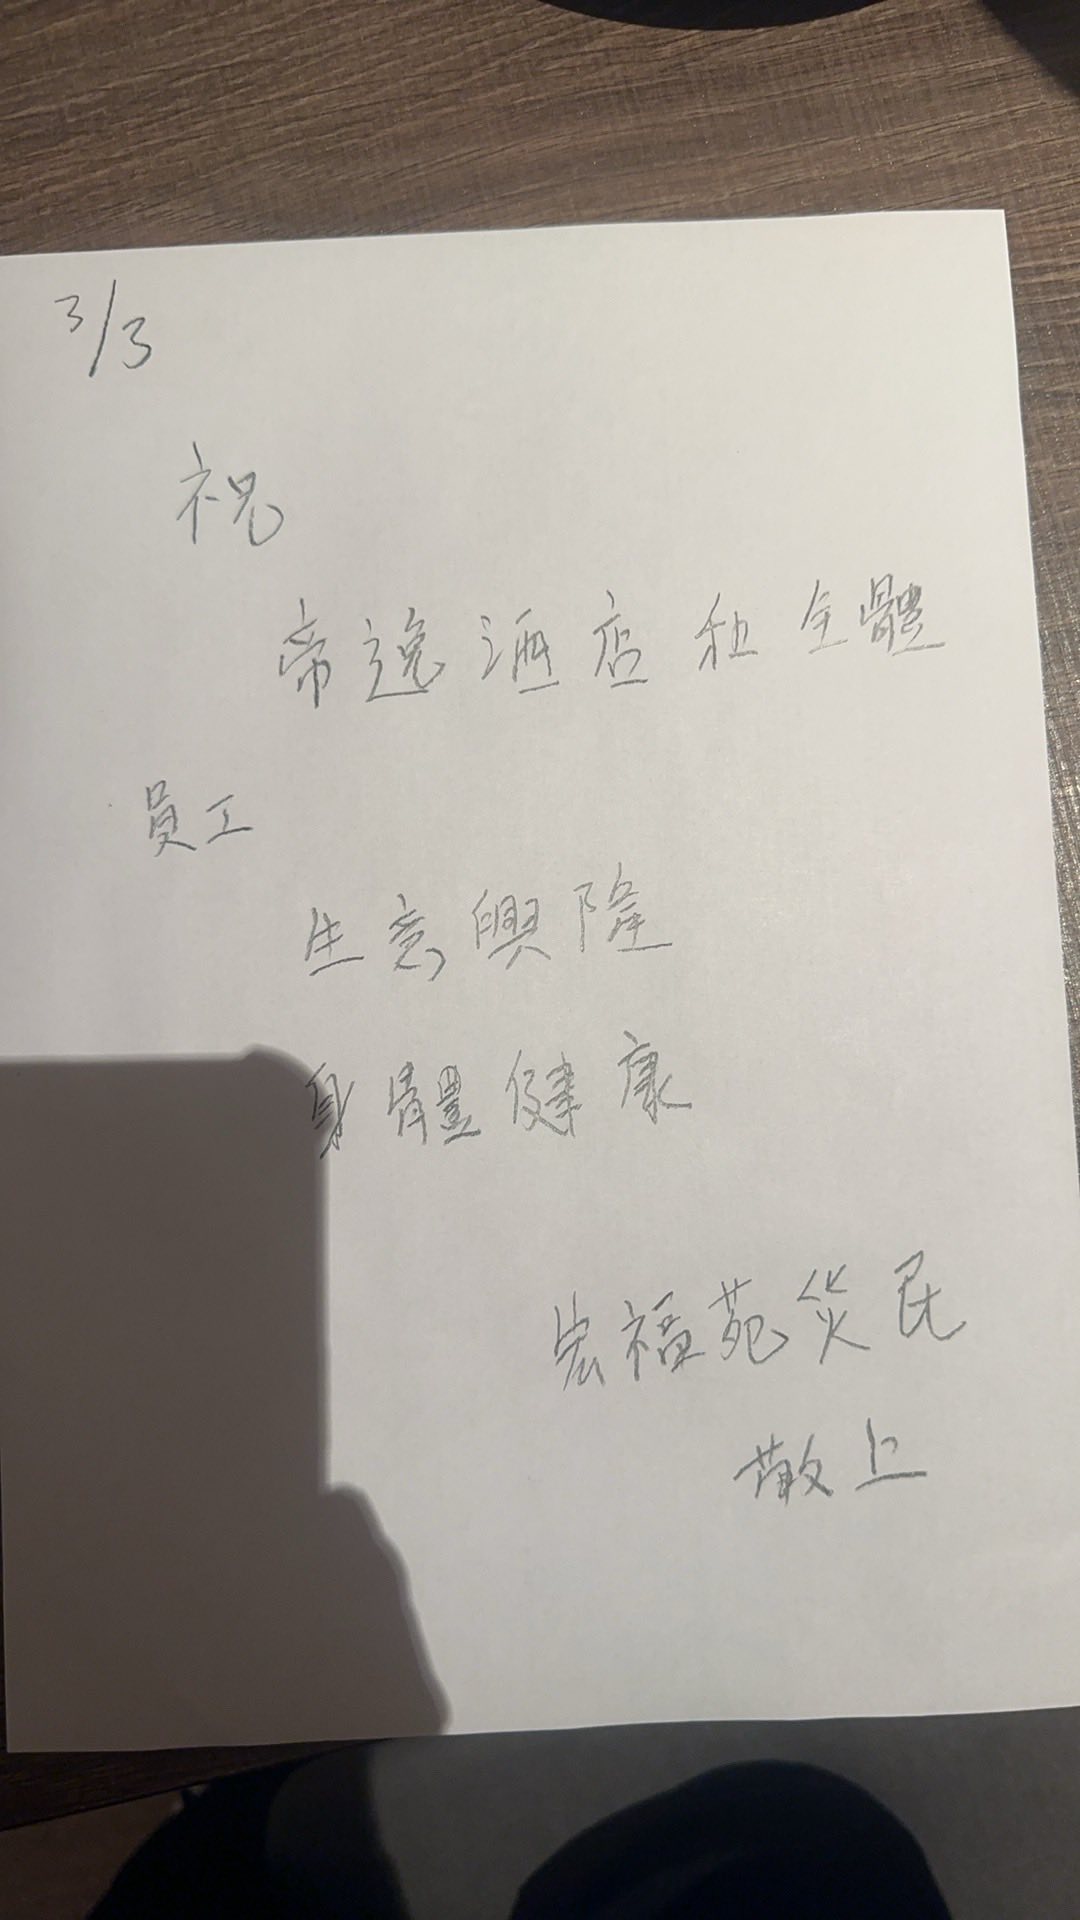 3/3
祝
帝逸酒店和全體
員工
生意興隆
身體健康
宏福苑災民
敬上